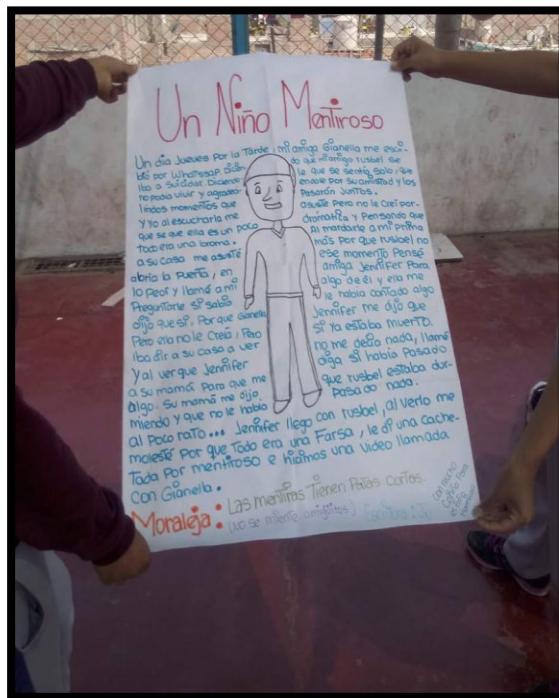 Un Niño Mentiroso
Un día Jueves Por la Tarde, mi amiga Gianella me escri-
bió por Whatssap dicien do que mi amigo rusbel se
iba a Suicidar. Diciendo le que se sentía solo, que
no podía vivir y agradec endole por su amistad y los
lindos momentos que Pasarón Juntos.
Y yo al escucharla me asusté Pero no le creí por-
que se que ella es un poco dramática y Pensando que
todo era una broma. Al mandarle a mi Prima
a su casa me asusté más Por que rusbel no
abría la Puerta, en ese momento Pensé
lo peor y llamé a mi amiga Jennifer Para
Preguntarle si sabía algo de él y ella me
dijo que sí, Por que Gianella le había contado algo
Pero ella no le Creía, Pero Jennifer me dijo que
iba dir a su casa a ver si ya estaba muerto.
Y al ver que Jennifer no me decía nada, llamé
a su mamá Para que me diga si había Pasado
algo. Su mamá me dijo que rusbel estaba dur-
miendo y que no le había Pasado nada.
al Poco rato... Jennifer llego con rusbel, al verlo me
molesté Por que Todo era una Farsa, le di una cache-
Tada Por mentiroso e hicimos una video llamada
Con Gianella.
Moraleja: Las mentiras Tienen Patas cortas.
(no se miente amiguitos)